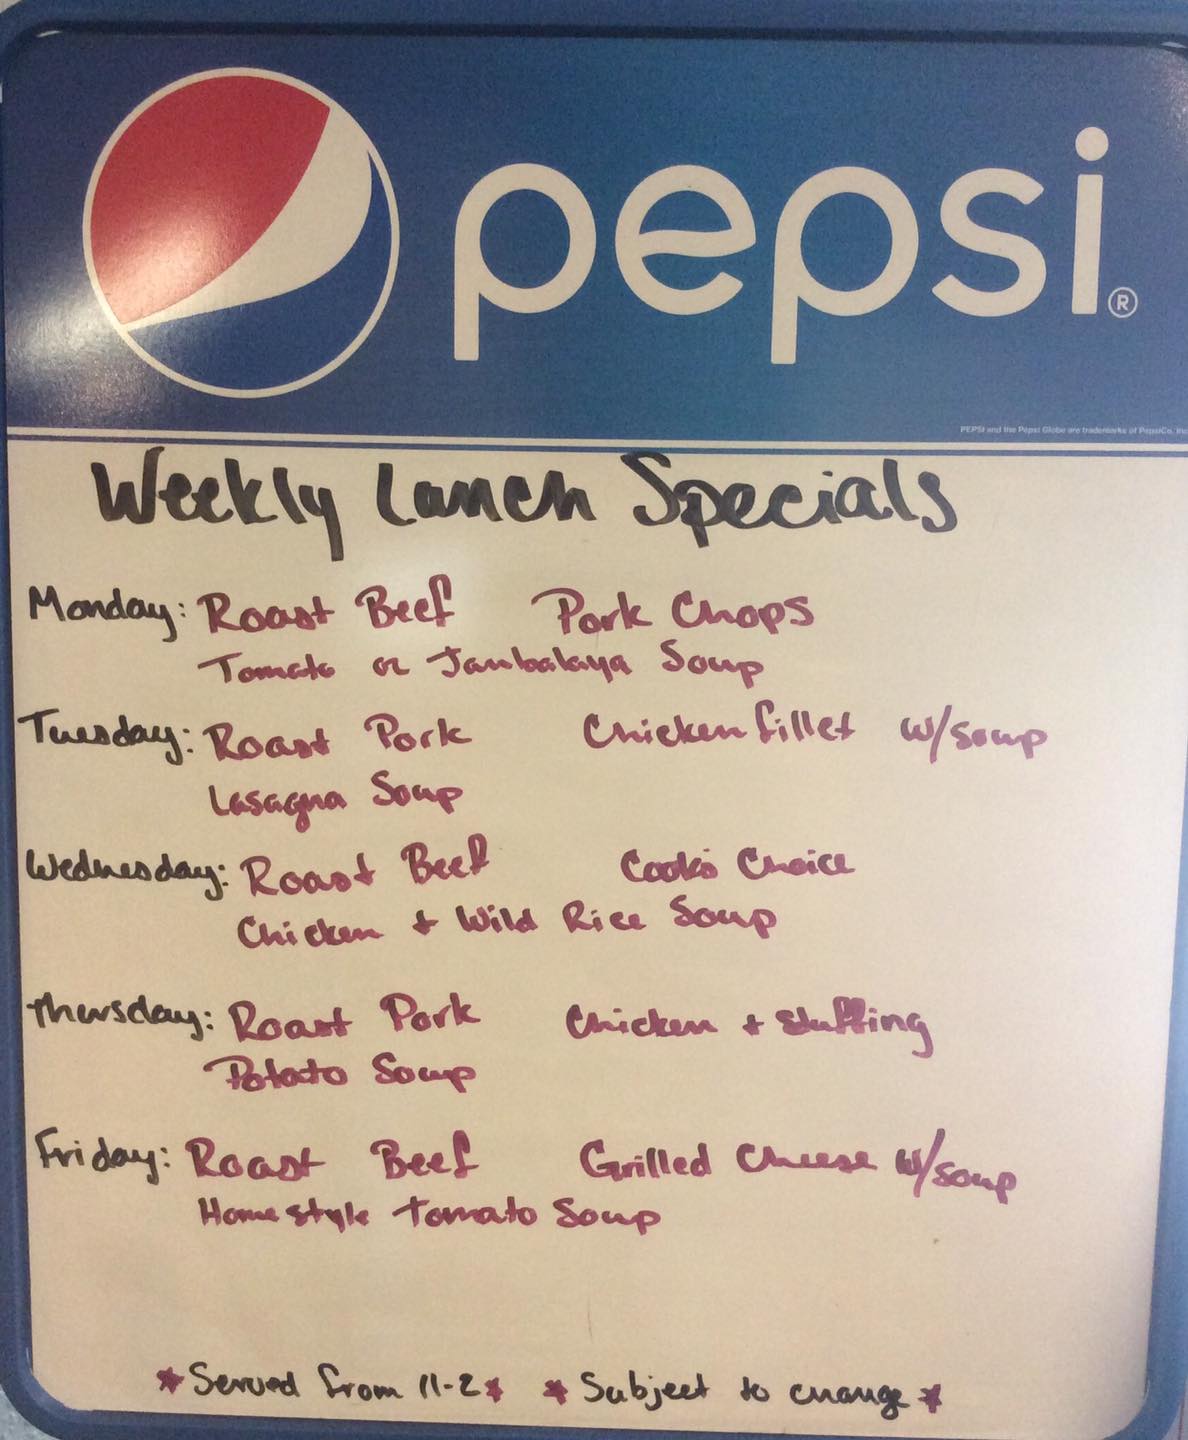 pepsi®
PEPSI and the Pepsi Globe are trademarks of PepsiCo, Inc
Weekly Lunch Specials
Monday: Roast Beef Pork Chops
Tomato or Jambalaya Soup
Tuesday: Roast Pork Chicken fillet w/soup
Lasagna Soup
Wednesday: Roast Beef Cook's Choice
Chicken + Wild Rice Soup
Thursday: Roast Pork Chicken + Stuffing
Potato Soup
Friday: Roast Beef Grilled Cheese w/soup
Homestyle Tomato Soup
*Served from 11-2* *Subject to change*